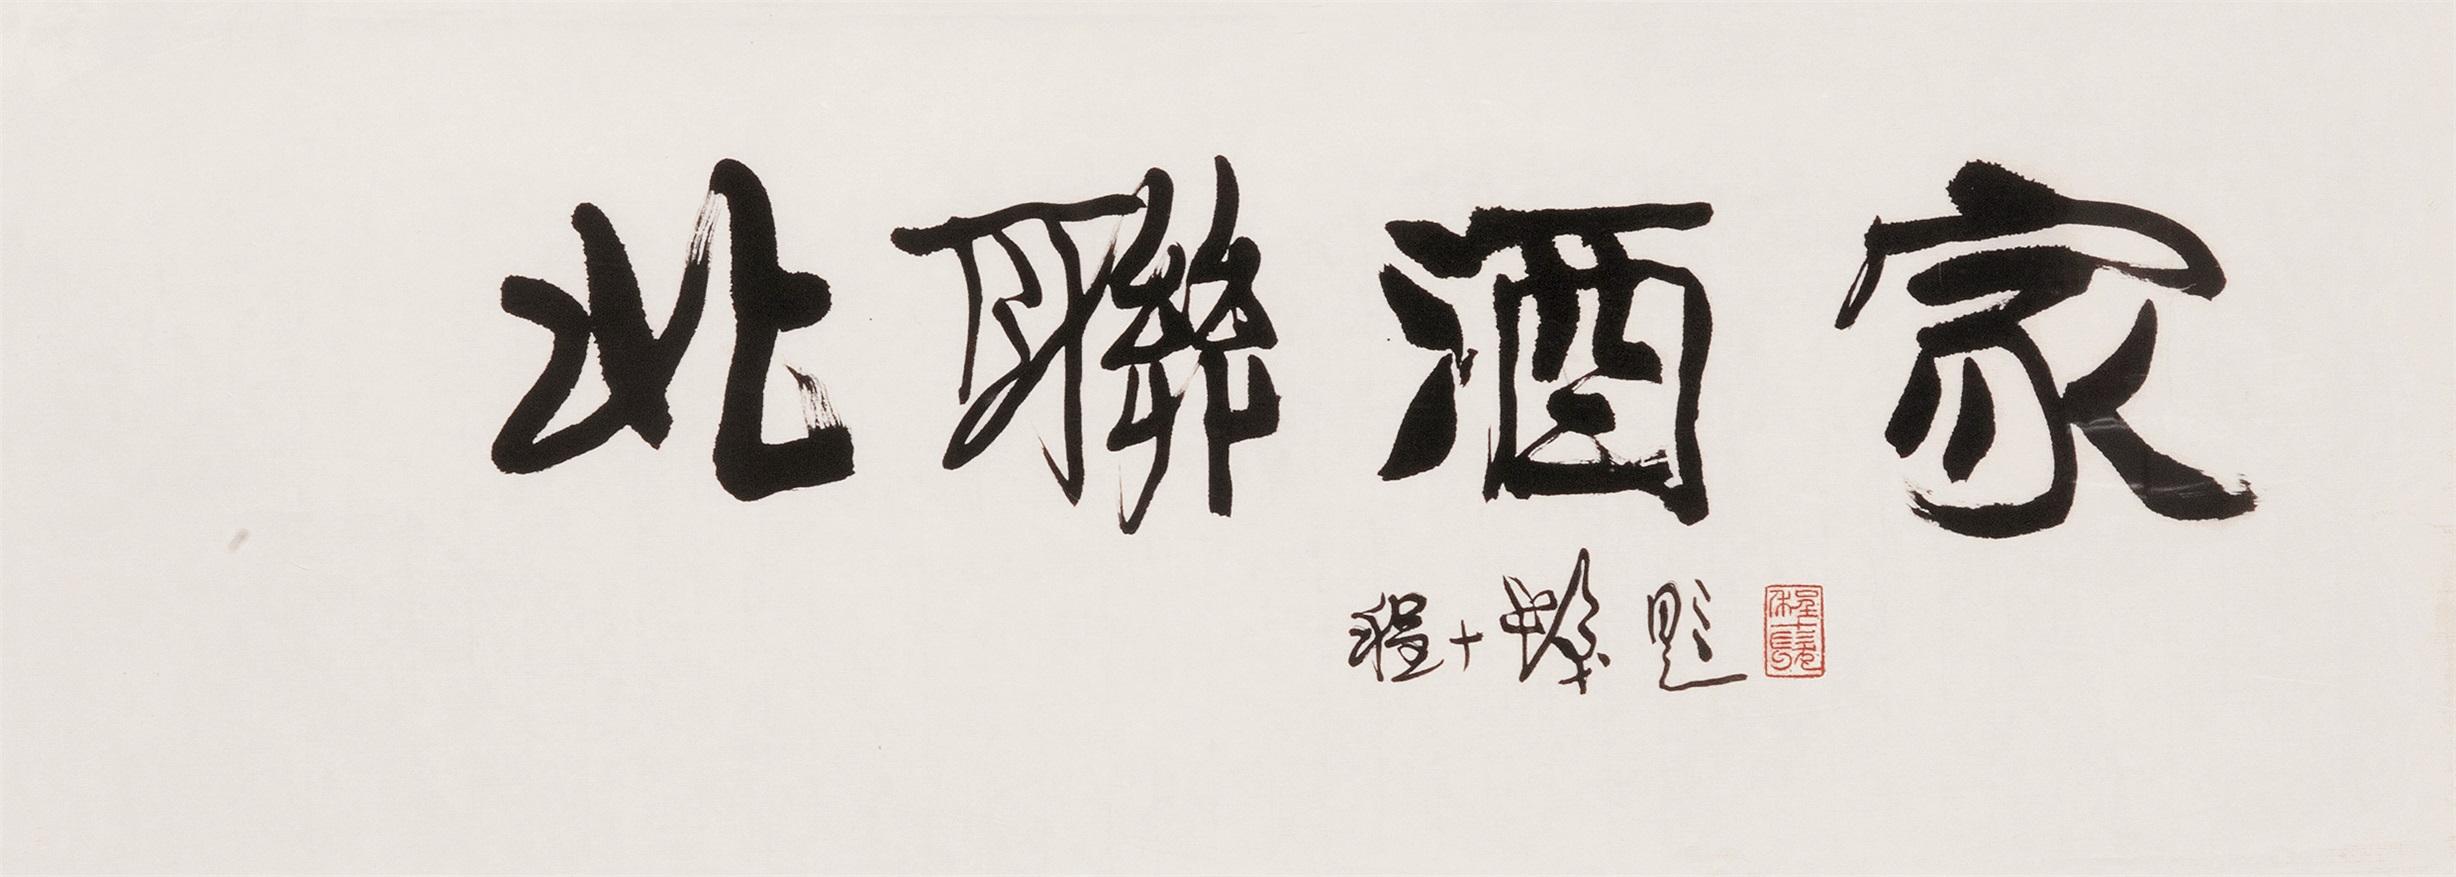 北聯酒家
程十髮題
程十髮